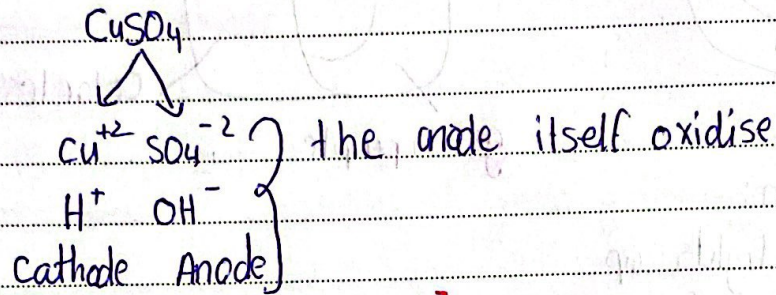 CuSO₄
Cu⁺² SO₄⁻² } the anode itself oxidise
H⁺ OH⁻
Cathode Anode